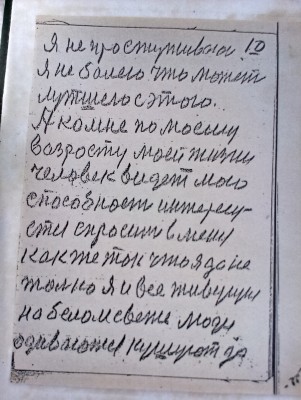 Я не проступниваю 10
Я не болею что может
лутшело с этого.
А комне по моему
возросту моей жизни
человек видет мою
способности интересу-
сти спросит в меня
как же так что я да не
только я и все живущии
на белом свете люди
одиваютсе кушуют да